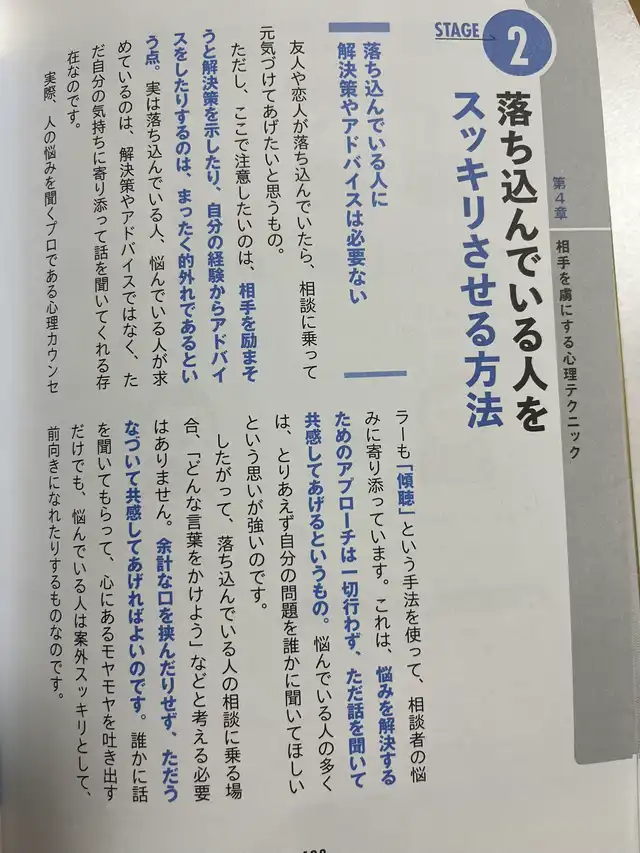 第4章
相手を虜にする心理テクニック
STAGE
2
落ち込んでいる人を
スッキリさせる方法
落ち込んでいる人に
解決策やアドバイスは必要ない
友人や恋人が落ち込んでいたら、相談に乗って
元気づけてあげたいと思うもの。
ただし、ここで注意したいのは、相手を励まそ
うと解決策を示したり、自分の経験からアドバイ
スをしたりするのは、まったく的外れであるとい
う点。実は落ち込んでいる人、悩んでいる人が求
めているのは、解決策やアドバイスではなく、た
だ自分の気持ちに寄り添って話を聞いてくれる存
在なのです。
実際、人の悩みを聞くプロである心理カウンセ
ラーも「傾聴」という手法を使って、相談者の悩
みに寄り添っています。これは、悩みを解決する
ためのアプローチは一切行わず、ただ話を聞いて
共感してあげるというもの。悩んでいる人の多く
は、とりあえず自分の問題を誰かに聞いてほしい
という思いが強いのです。
したがって、落ち込んでいる人の相談に乗る場
合、「どんな言葉をかけよう」などと考える必要
はありません。余計な口を挟んだりせず、ただう
なづいて共感してあげればよいのです。誰かに話
を聞いてもらって、心にあるモヤモヤを吐き出す
だけでも、悩んでいる人は案外スッキリとして、
前向きになれたりするものなのです。